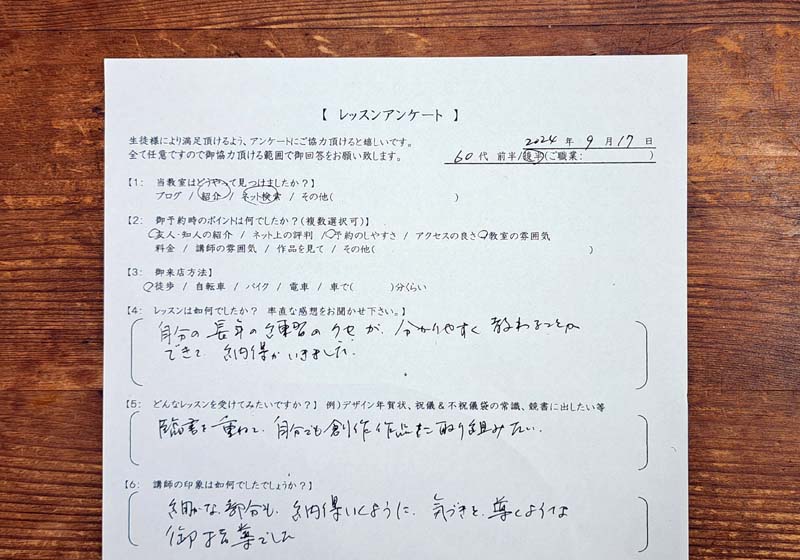 【 レッスンアンケート 】
生徒様により満足頂けるよう、アンケートにご協力頂けると嬉しいです。
2024 年 9 月 17 日
全て任意ですので御協力頂ける範囲で御回答をお願い致します。
60代 前半/後半(ご職業: )
【1: 当教室はどうやって見つけましたか?】
ブログ / 紹介 / ネット検索 / その他( )
【2: 御予約時のポイントは何でしたか?(複数選択可)】
友人・知人の紹介 / ネット上の評判 / 予約のしやすさ / アクセスの良さ 教室の雰囲気
料金 / 講師の雰囲気 / 作品を見て / その他( )
【3: 御来店方法】
徒歩 / 自転車 / バイク / 電車 / 車で( )分くらい
【4: レッスンは如何でしたか? 率直な感想をお聞かせ下さい。】
自分の長年の練習のクセが、分かりやすく教わることが
できて、納得がいきました.
【5: どんなレッスンを受けてみたいですか?】 例)デザイン年賀状、祝儀&不祝儀袋の常識、競書に出したい等
臨書を重ねて、自分でも創作作品を取り組みたい.
【6: 講師の印象は如何でしたでしょうか?】
細かな部分も、納得いくように、気づきと、導くような
御指導でした